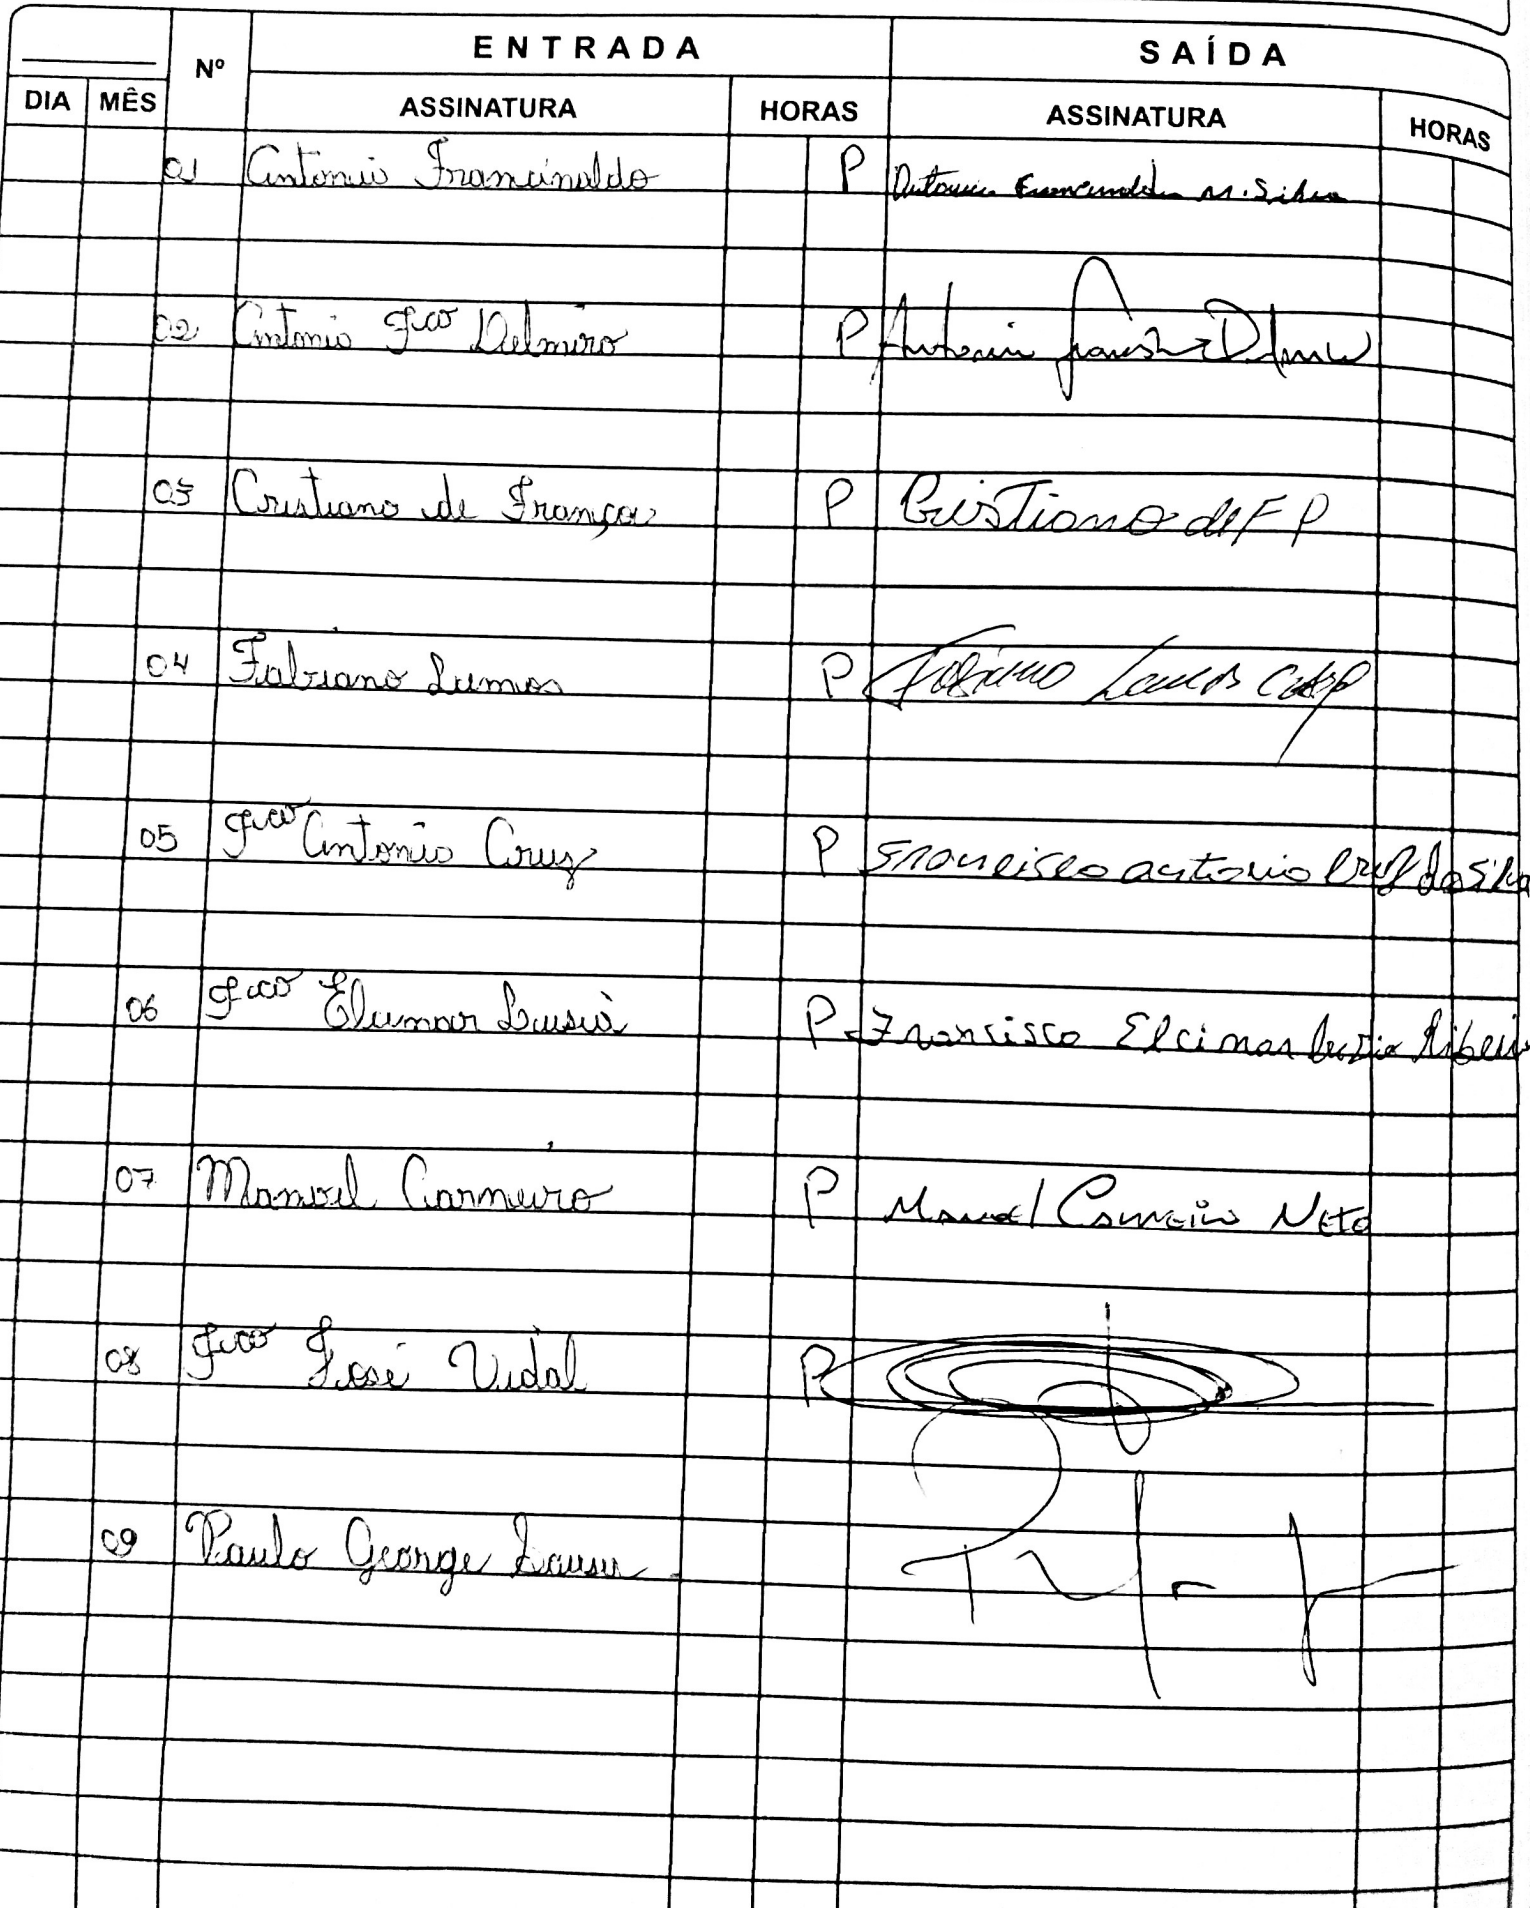 ENTRADA SAÍDA
Nº
DIA MÊS ASSINATURA HORAS ASSINATURA HORAS
01 Antonio Francinaldo P Antonio Francinaldo M. Silva
02 Antonio Fco Delmiro P Antonio
03 Cristiano de França P Cristiano de F P
04 Fabiano Lemos P Fabiano Lemos
05 Fco Antonio Cruz P Francisco antonio Cruz da Silva
06 Fco Elcimar P Francisco Elcimar Ribeiro
07 Manoel Carneiro P Manoel Carneiro Neto
08 Fco José Vidal P
09 Paulo George